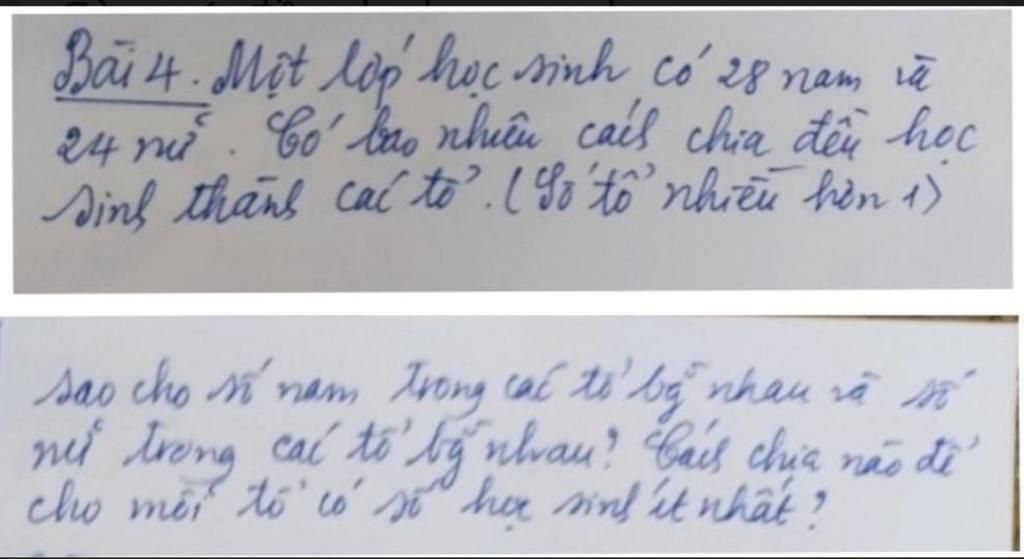 Bài 4. Một lớp học sinh có 28 nam và
24 nữ. Có bao nhiêu cách chia đều học
sinh thành các tổ. (Số tổ nhiều hơn 1)
sao cho số nam trong các tổ bg̃ nhau và số
nữ trong các tổ bg̃ nhau? Cách chia nào để
cho mỗi tổ có số học sinh ít nhất?